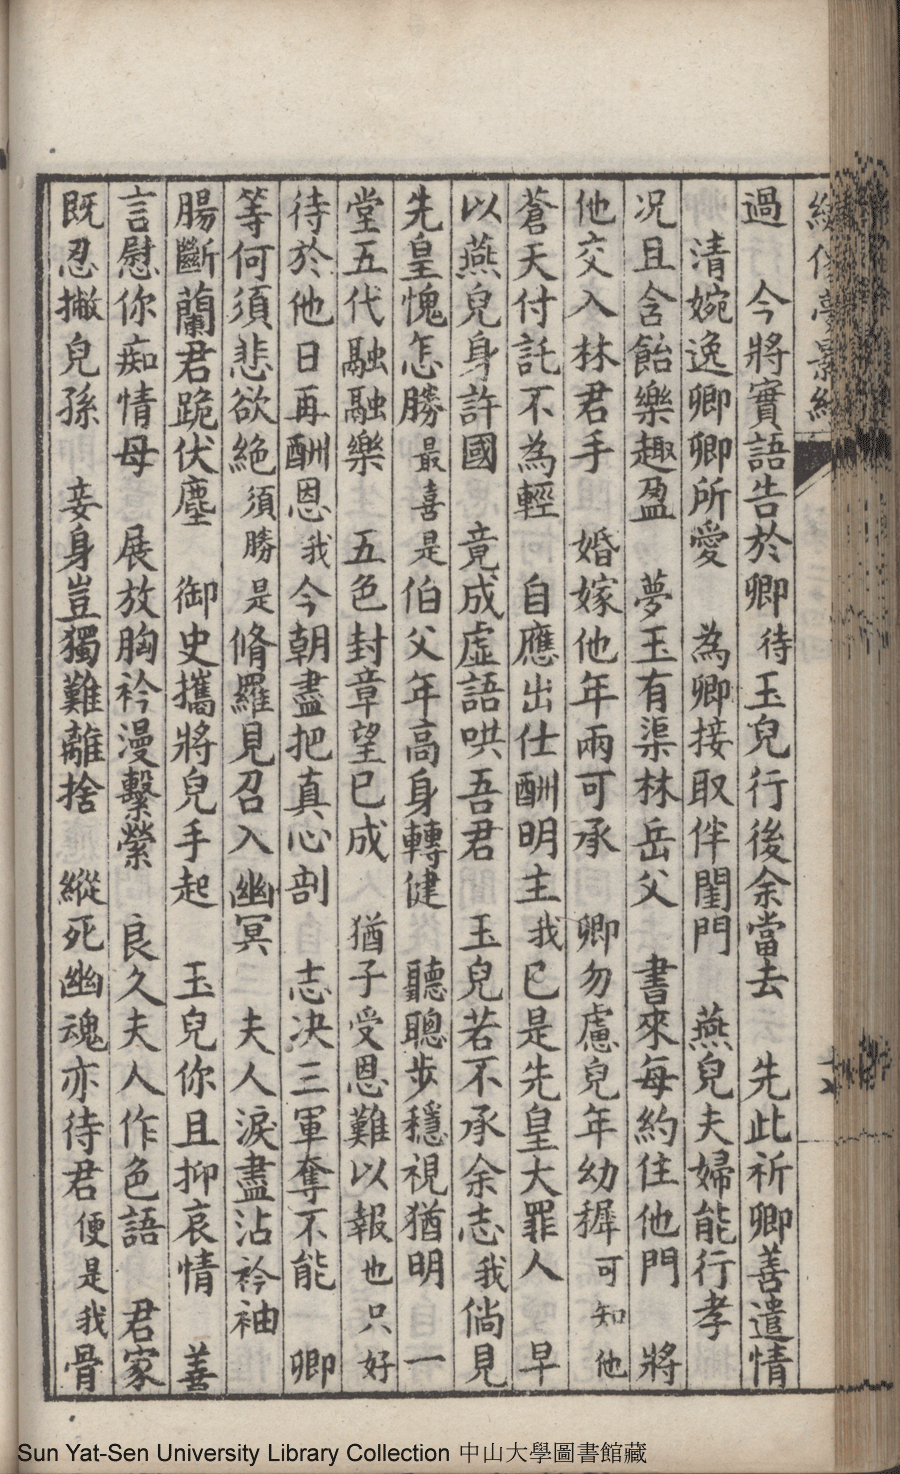 過 今將實語告於卿 待玉兒行後余當去 先此祈卿善遣情
清婉逸卿卿所愛 為卿接取伴閨門 燕兒夫婦能行孝
况且含飴樂趣盈 夢玉有渠林岳父 書來每約住他門 將
他交入林君手 婚嫁他年兩可承 卿勿慮兒年幼穉 可知他
蒼天付託不為輕 自應出仕酬明主 我已是先皇大罪人 早
以燕兒身許國 竟成虛語哄吾君 玉兒若不承余志 我倘見
先皇愧怎勝 最喜是伯父年高身轉健 聽聰步穩視猶明 一
堂五代融融樂 五色封章望已成 猶子受恩難以報 也只好
待於他日再酬恩 我今朝盡把真心剖 志决三軍奪不能 卿
等何須悲欲絶 須勝是脩羅見召入幽冥 夫人淚盡沾衿袖
腸斷蘭君跪伏塵 御史攜將兒手起 玉兒你且抑哀情 善
言慰你痴情母 展放胸衿漫繫縈 良久夫人作色語 君家
既忍撇兒孫 妾身豈獨難離捨 縱死幽魂亦待君 便是我骨
Sun Yat-Sen University Library Collection 中山大學圖書館藏